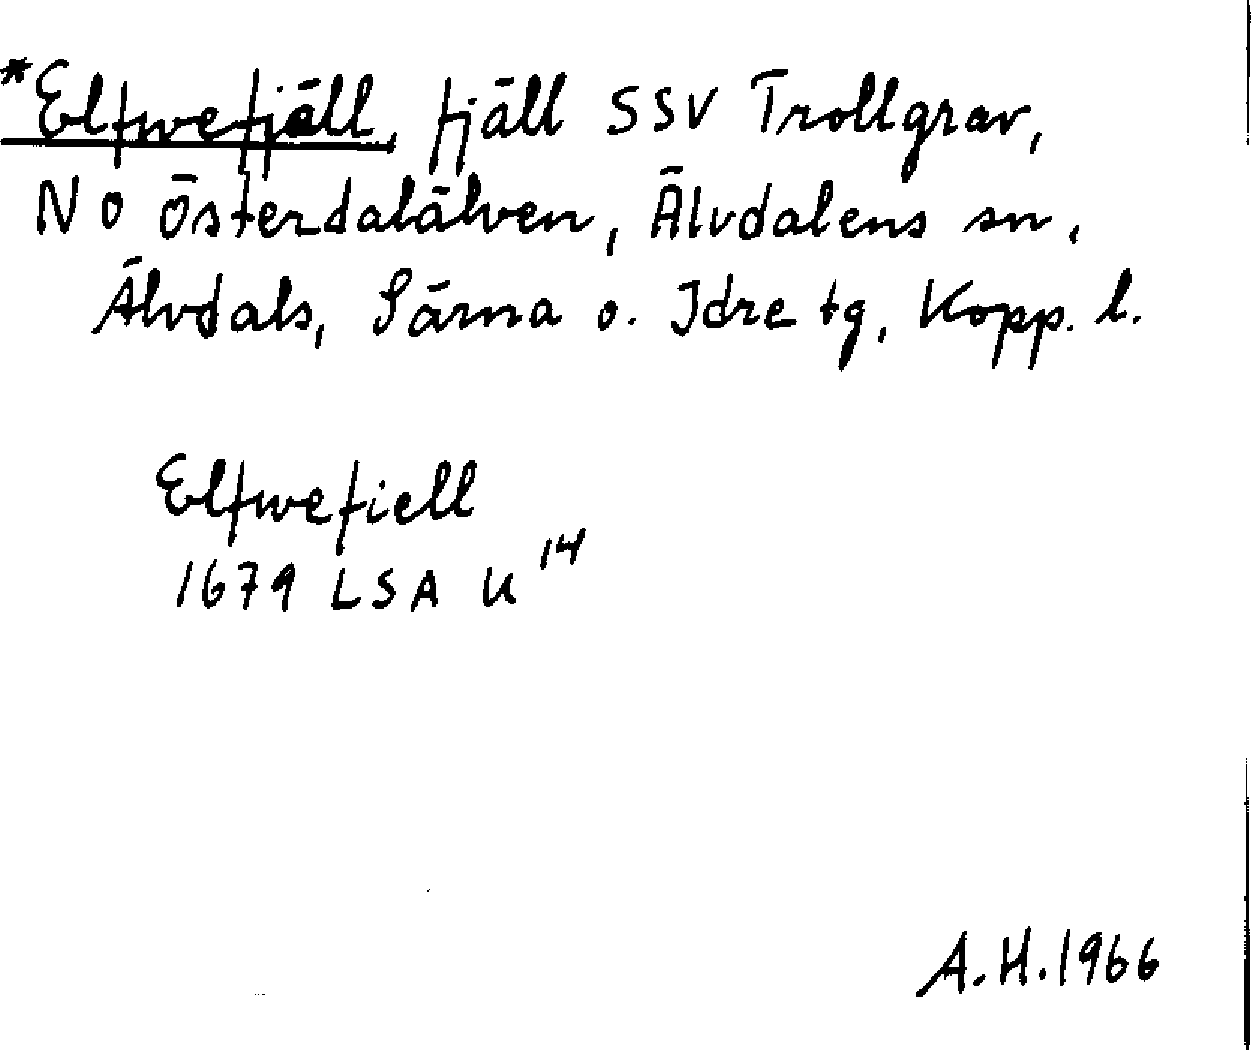 *Elfwefjäll, fjäll SSV Trollgrav,
N o Österdalälven, Älvdalens sn,
Älvdals, Särna o. Idre tg, Kopp. l.
Elfwefiell
1679 LSA U 14
A.H. 1966